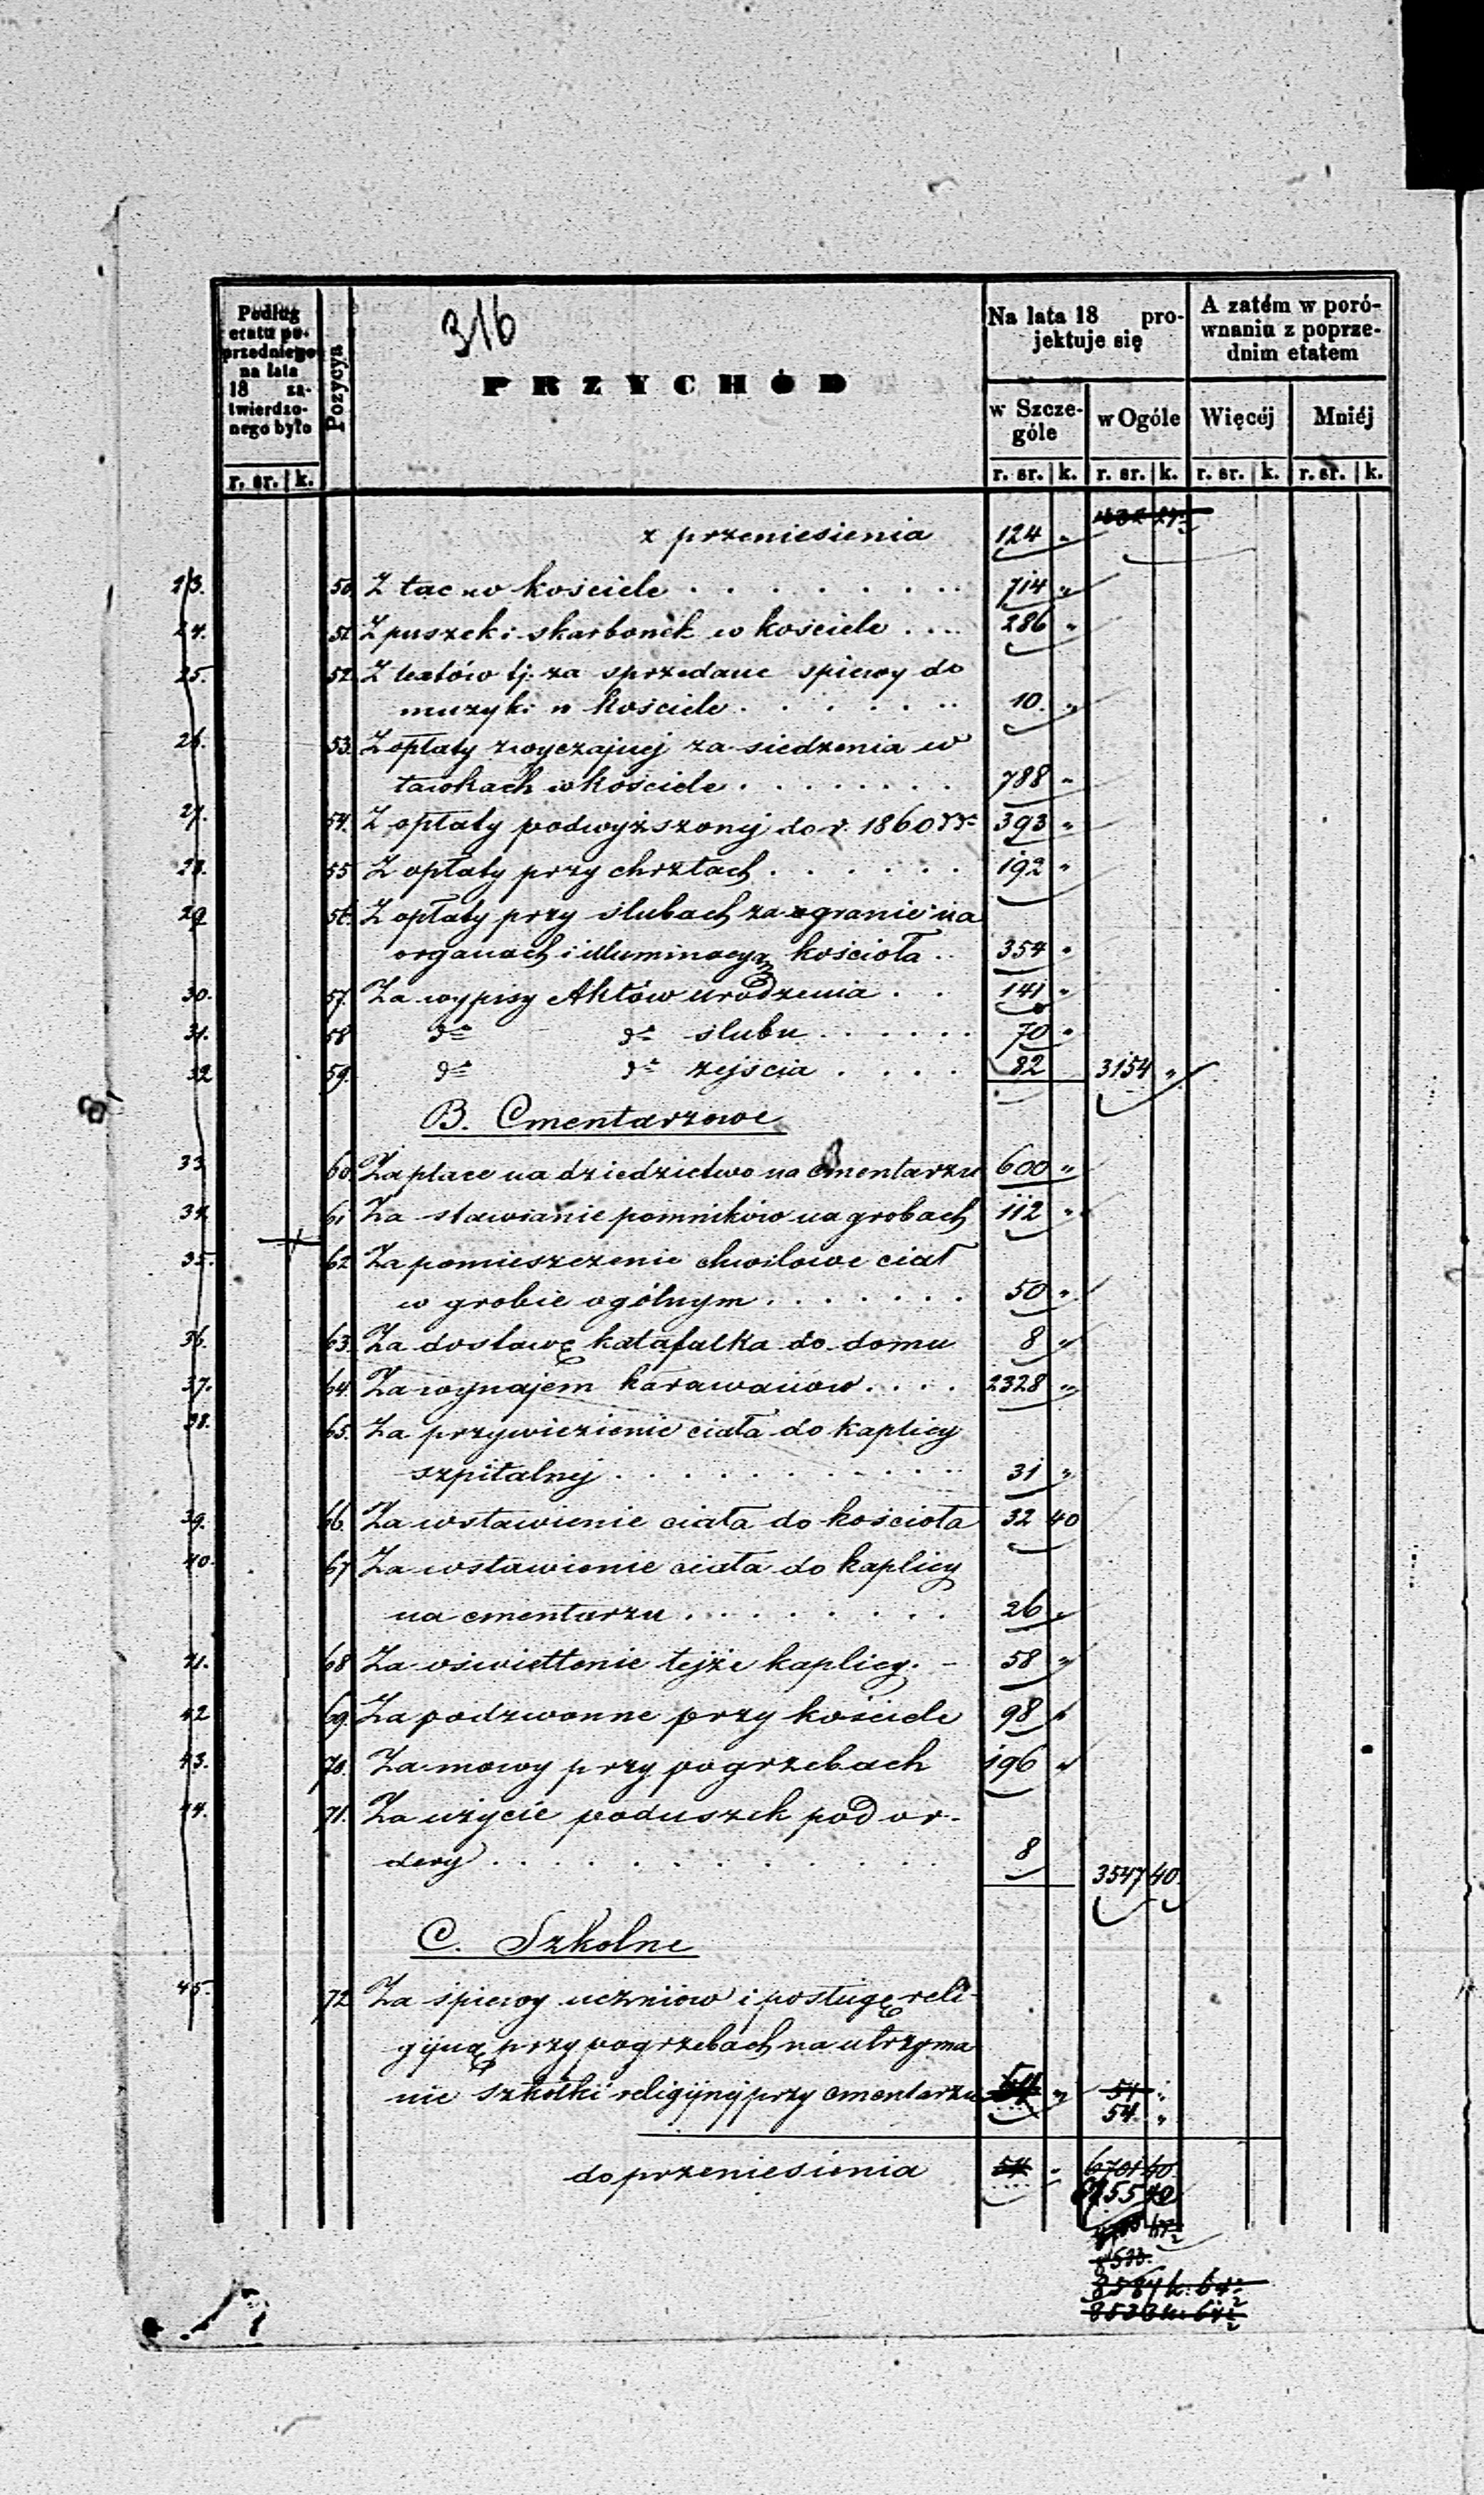 316
PRZYCHÓD
Podług etatu poprzedniego na lata 18 zatwierdzonego było
Pozycya
Na lata 18 projektuje się
A zatém w porównaniu z poprzednim etatem
w Szczególe
w Ogóle
Więcéj
Mniéj
r. sr. k. r. sr. k. r. sr. k. r. sr. k. r. sr. k.
z przeniesienia 124 "
50. Z tac w kościele . . . . 714 "
24. 51. Z puszek i skarbonek w kościele . . . 286 "
25. 52. Z textów tj. za sprzedane spiewy do
muzyki w kościele . . . . 10. "
26. 53. Z opłaty zwyczajnej za siedzenia w
ławkach w kościele . . . . 788 "
27. 54. Z opłaty podwyższonej do r. 1860 393 "
28. 55 Z opłaty przy chrztach . . . . 192 "
29 56. Z opłaty przy ślubach za granie na
organach i illuminacyą kościoła . . 354 "
30. 57. Za wypisy Aktów urodzenia . . 141 "
31. 58 do do ślubu . . . . 70 "
32 59. do do zejścia . . . . 82 3154 "
B. Cmentarzowe
33 60. Za place na dziedzictwo na cmentarzu 600 "
34. 61 Za stawianie pomników na grobach 112 "
35. 62 Za pomieszczenie chwilowe ciał
w grobie ogólnym . . . . 50 "
36. 63. Za dostawę katafalka do domu 8 "
37. 64. Za wynajem karawanów . . . . 2328 "
38. 65. Za przywiezienie ciała do kaplicy
szpitalnej . . . . 31 "
39. 66. Za wstawienie ciała do kościoła 32 40
40. 67 Za wstawienie ciała do kaplicy
na cmentarzu . . . . 26 "
41. 68 Za oświetlenie tejże kaplicy. - 58 "
42 69. Za podzwonne przy kościele 98 "
43. 70. Za mowy przy pogrzebach 196 "
44. 71. Za użycie poduszek pod or-
dery . . . . 8 3547 40.
C. Szkolne
45. 72 Za śpiewy uczniów i posługę reli-
gijną przy pogrzebach na utrzyma
nie szkółki religijnej przy cmentarzu 54 " 54 "
54. "
do przeniesienia 54 " 6701 40
6755 40